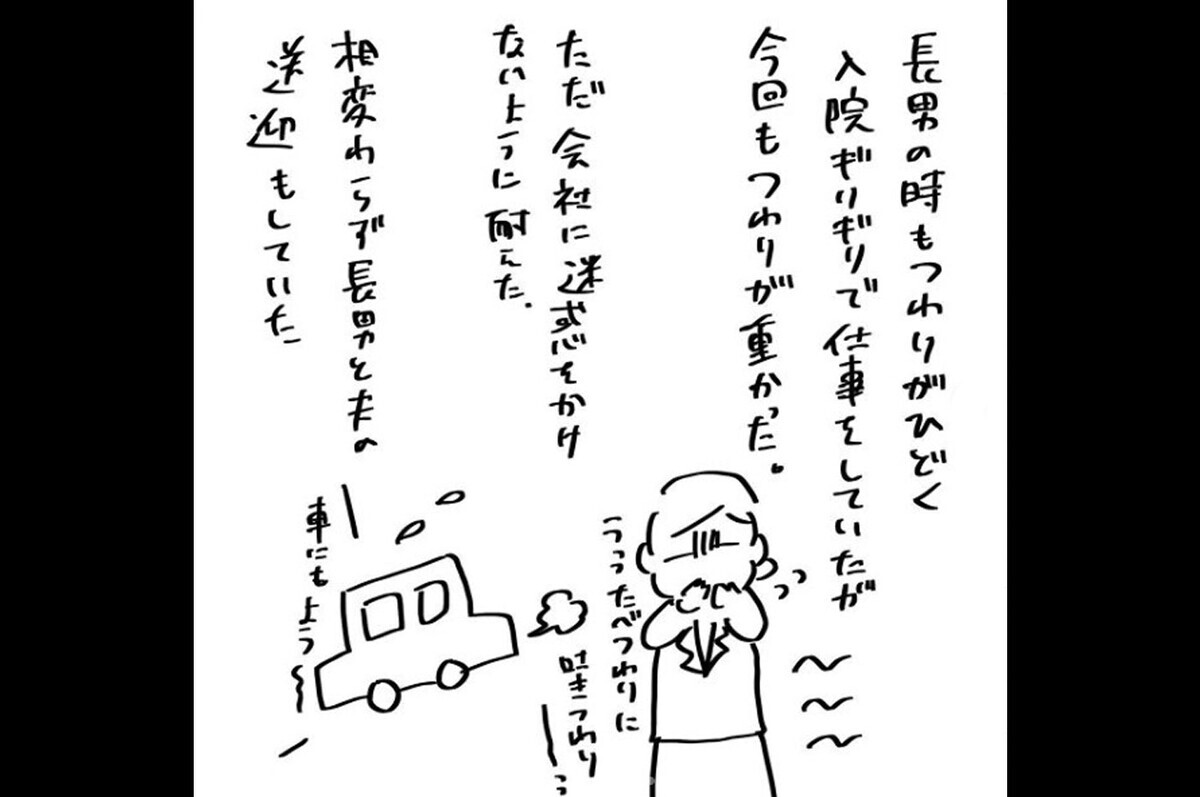 長男の時もつわりがひどく
入院ギリギリで仕事をしていたが
今回もつわりが重かった。
ただ会社に迷惑をかけ
ないように耐えた.
相変わらず長男と夫の
送迎もしていた
うっったべつわりに
吐きつわりーっ
車にもようー